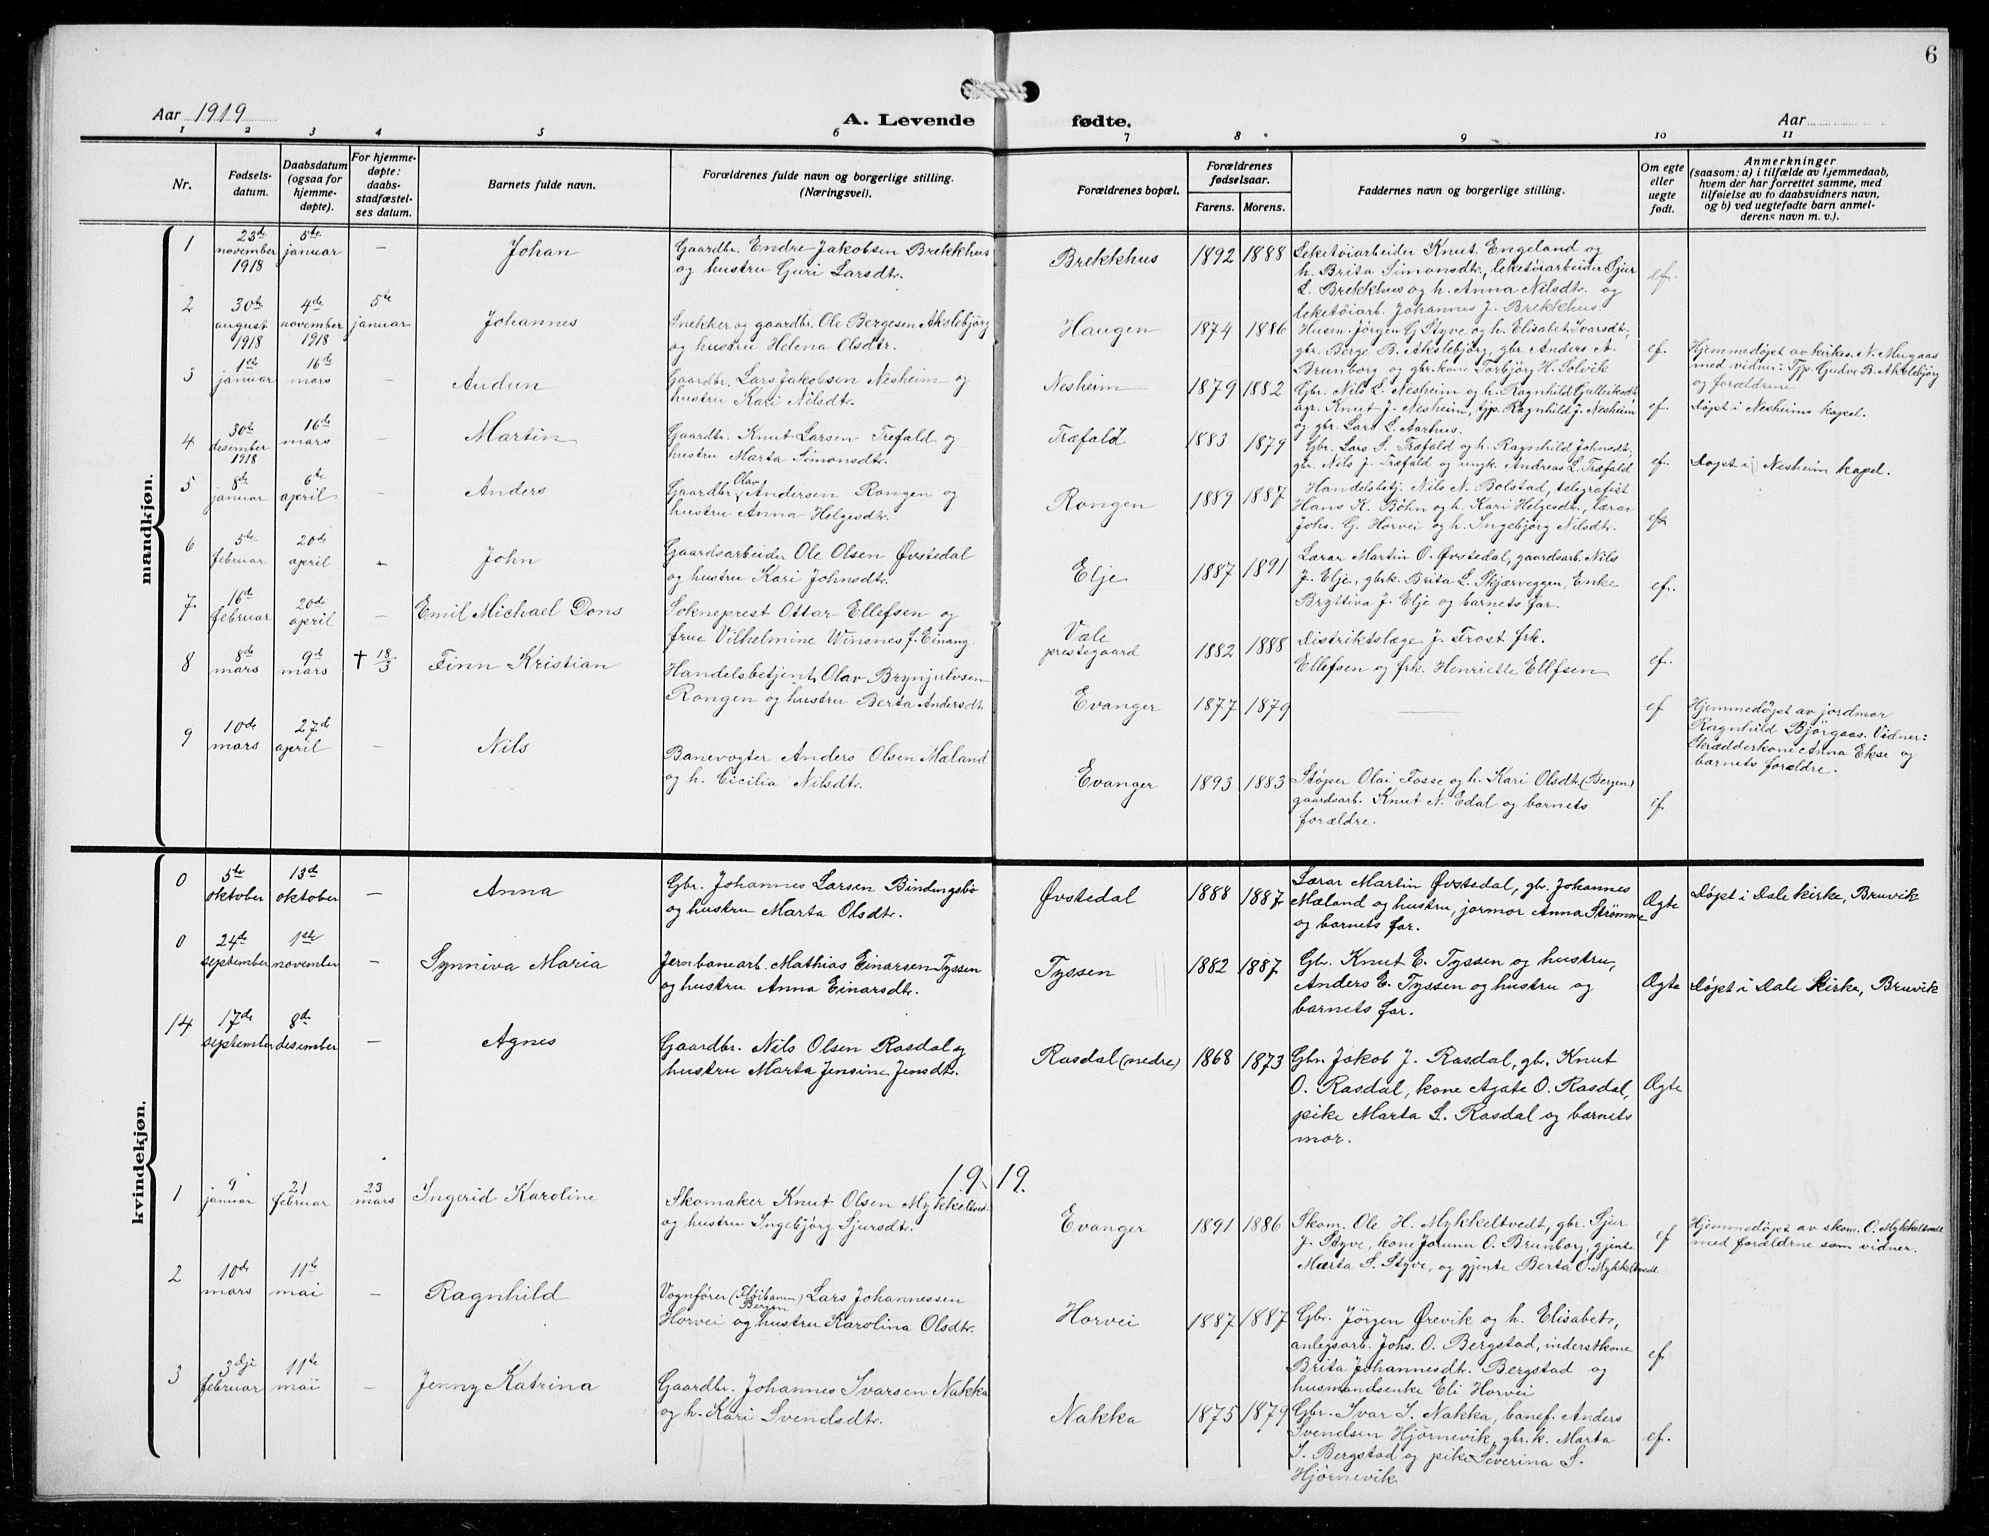 6
Aar 1919
A. Levende fødte.
Aar
1 2 3 4 5 6 7 8 9 10 11
Nr.
Fødsels-
datum.
Daabsdatum
(ogsaa for
hjemme-
døpte).
For hjemme-
døpte:
daabs-
stadfæstel-
ses datum.
Barnets fulde navn.
Forældrenes fulde navn og borgerlige stilling.
(Næringsvei).
Forældrenes bopæl.
Forældrenes
fødselsaar.
Farens. Morens.
Faddernes navn og borgerlige stilling.
Om egte
eller
uegte
født.
Anmerkninger
(saasom: a) i tilfælde av hjemmedaab,
hvem der har forrettet samme, med
tilføielse av to daabsvidners navn,
og b) ved uegtefødte barn anmel-
derens navn m. v.).
mandkjøn.
1
23de
november
1918
5te
januar
-
Johan
Gaardbr. Endre Jakobsen Brekkhus
og hustru Guri Larsdtr.
Brekkhus
1892 1888
Leketøiarbeider Knut Engeland og
h. Brita Simonsdtr, leketøiarbeider Sjur
L. Brekkhus og h. Anna Nilsdtr. og
leketøiarb. Johannes J. Brekkhus.
ef.
2
30te
august
1918
4de
november
1918
5te
januar
Johannes
Snekker og gaardbr. Ole Bergesen Akslebjörg
og hustru Helena Olsdtr.
Haugen
1874 1886
Husm. Jörgen G Styve og h. Elisabet Ivarsdtr,
gbr. Berge B. Akslebjörg, gbr. Anders A.
Brunborg og gbr.kone Torbjörg H. Solvik
ef.
Hjemmedøpt av kirkes. N. Mugaas
med vidner: Tjp. Gudve B. Akslebjörg
og forældrene
3
1ste
januar
16de
mars
-
Audun
Gaardbr. Lars Jakobsen Nesheim og
hustru Kari Nilsdtr.
Nesheim
1879 1882
Gbr. Nils L. Nesheim og h. Ragnhild Gulleiksdtr
agr. Knut J. Nesheim, tjp. Ragnhild J. Nesheim
og gbr. Lars L. Aarhus.
ef.
Døpt i Nesheims kapel.
4
30te
desember
1918
16de
mars
-
Martin
Gaardbr. Knut Larsen Trefald og
hustru Marta Simonsdtr.
Træfald
1883 1879
Gbr. Lars S. Træfald og h. Ragnhild Johnsdtr,
gbr. Nils J. Træfald og ungk. Andreas L. Træfald
ef.
Døpt i Nesheim kapel.
5
8de
januar
6te
april
-
Anders
Gaardbr. Olav Andersen Rongen og
hustru Anna Helgesdtr.
Rongen
1889 1887
Handelsbetj. Nils N. Bolstad, telegrafist
Hans K. Bøhn og h. Kari Helgesdtr., lærar
Johs. G. Horvei og h. Ingebjörg Nilsdtr.
ef.
6
5te
februar
20de
april
-
John
Gaardsarbeider Ole Olsen Øvstedal
og hustru Kari Johnsdtr.
Elje
1887 1891
Lærar Martin O. Øvstedal, gaardsarb. Nils
J. Elje, gbrk. Brita L. Skjærveggen, Enke
Bryttiva J. Elje og barnets far.
ef.
7
16de
februar
20de
april
-
Emil Michael Dons
Sokneprest Ottar Ellefsen og
frue Vilhelmine Winsnes f. Einang
Vale
prestegaard
1882 1888
Distriktslæge J. Frost frk.
Ellefsen og frk. Henriette Ellfsen
ef.
8
8de
mars
9de
mars
† 18/3
Finn Kristian
Handelsbetjent Olav Brynjulvsen
Rongen og hustru Berta Andersdtr.
Evanger
1877 1879
ef
Hjemmedøpt av jordmor
Ragnhild Bjørgaas. Vidner:
Skrædderkone Anna Ekse og
barnets forældre.
9
10de
mars
27de
april
-
Nils
Banevogter Anders Olsen Mæland
og h. Cicilia Nilsdtr.
Evanger
1893 1883
Støper Olai Fosse og h. Kari Olsdtr (Bergen)
gaardsarb. Knut N. Edal og barnets
forældre.
ef.
kvindekjøn.
0
5te
oktober
13de
oktober
-
Anna
Gbr. Johannes Larsen Bindingsbø
og hustru Marta Olsdtr.
Øvstedal
1888 1887
Lærar Martin Øvstedal, gbr. Johannes
Mæland og hustru, jormor Anna Strømme
og barnets far.
Ægte
Døpt i Dale kirke, Bruvik
0
24de
september
1ste
november
-
Synniva Maria
Jernbanearb. Mathias Einarsen Tyssen
og hustru Anna Einarsdtr.
Tyssen
1882 1887
Gbr. Knut E. Tyssen og hustru,
Anders E. Tyssen og hustru og
barnets far.
Ægte
Døpt i Dale kirke, Bruvik
14
17de
september
8de
desember
-
Agnes
Gaardbr. Nils Olsen Rasdal og
hustru Marta Jensine Jensdtr.
Rasdal (nedre)
1868 1873
Gbr. Jakob J. Rasdal, gbr. Knut
O. Rasdal, kone Agate O. Rasdal,
pike Marta L. Rasdal og barnets
mor.
Ægte
1919.
1
9
januar
21
februar
23
mars
Ingerid Karoline
Skomaker Knut Olsen Mykkeltved
og hustru Ingebjörg Sjursdtr.
Evanger
1891 1886
Skom. Ole H. Mykkeltvedt, gbr. Sjur
J. Styve, kone Jorunn O. Brunborg, gjente
Mærta S. Styve, og gjente Berta O. Mykkeltvedt.
ef
Hjemmedøpt av skom. O. Mykkeltvedt
med forældrne som vidner.
2
10de
mars
11te
mai
-
Ragnhild
Vognfører (Fløibanen Bergen) Lars Johannessen
Horvei og hustru Karolina Olsdtr.
Horvei
1887 1887
Gbr. Jørgen Ørevik og h. Elisabet,
anlegsarb. Johs. O. Bergstad, inderstkone
Brita Johannesdtr. Bergstad og
husmandsenke Eli Horvei
ef.
3
3dje
februar
11te
mai
-
Jenny Katrina
Gaardbr. Johannes Ivarsen Nakka
og h. Kari Svendsdtr.
Nakka
1875 1879
Gbr. Ivar I. Nakka, banef. Anders
Svendsen Hjørnevik, gbr.k. Marta
I. Bergstad og pike Severina S.
Hjørnevik
ef.